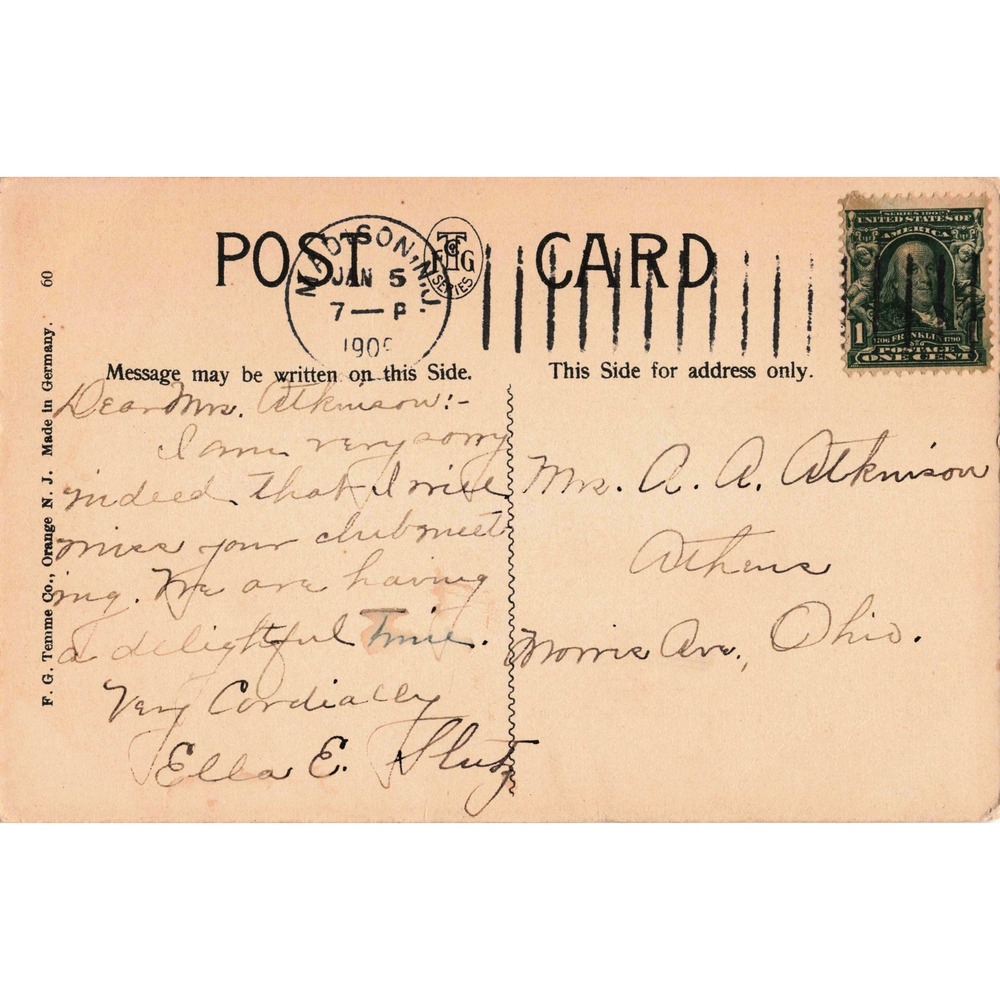 POST CARD
MADISON, N.J.
JAN 5
7—P
T Co
F G
SERIES
SERIES 1902
UNITED STATES OF
AMERICA
1706 FRANKLIN 1790
POSTAGE
1 ONE CENT
Message may be written on this Side.
This Side for address only.
Dear Mrs. Atkinson:-
I am very sorry
indeed that I will
miss your club meet
ing. We are having
a delightful time.
Very Cordially
Ella E. Slutz
Mrs. A. A. Atkinson
Athens
Morris Ave., Ohio.
F. G. Temme Co., Orange N. J. Made in Germany. 60